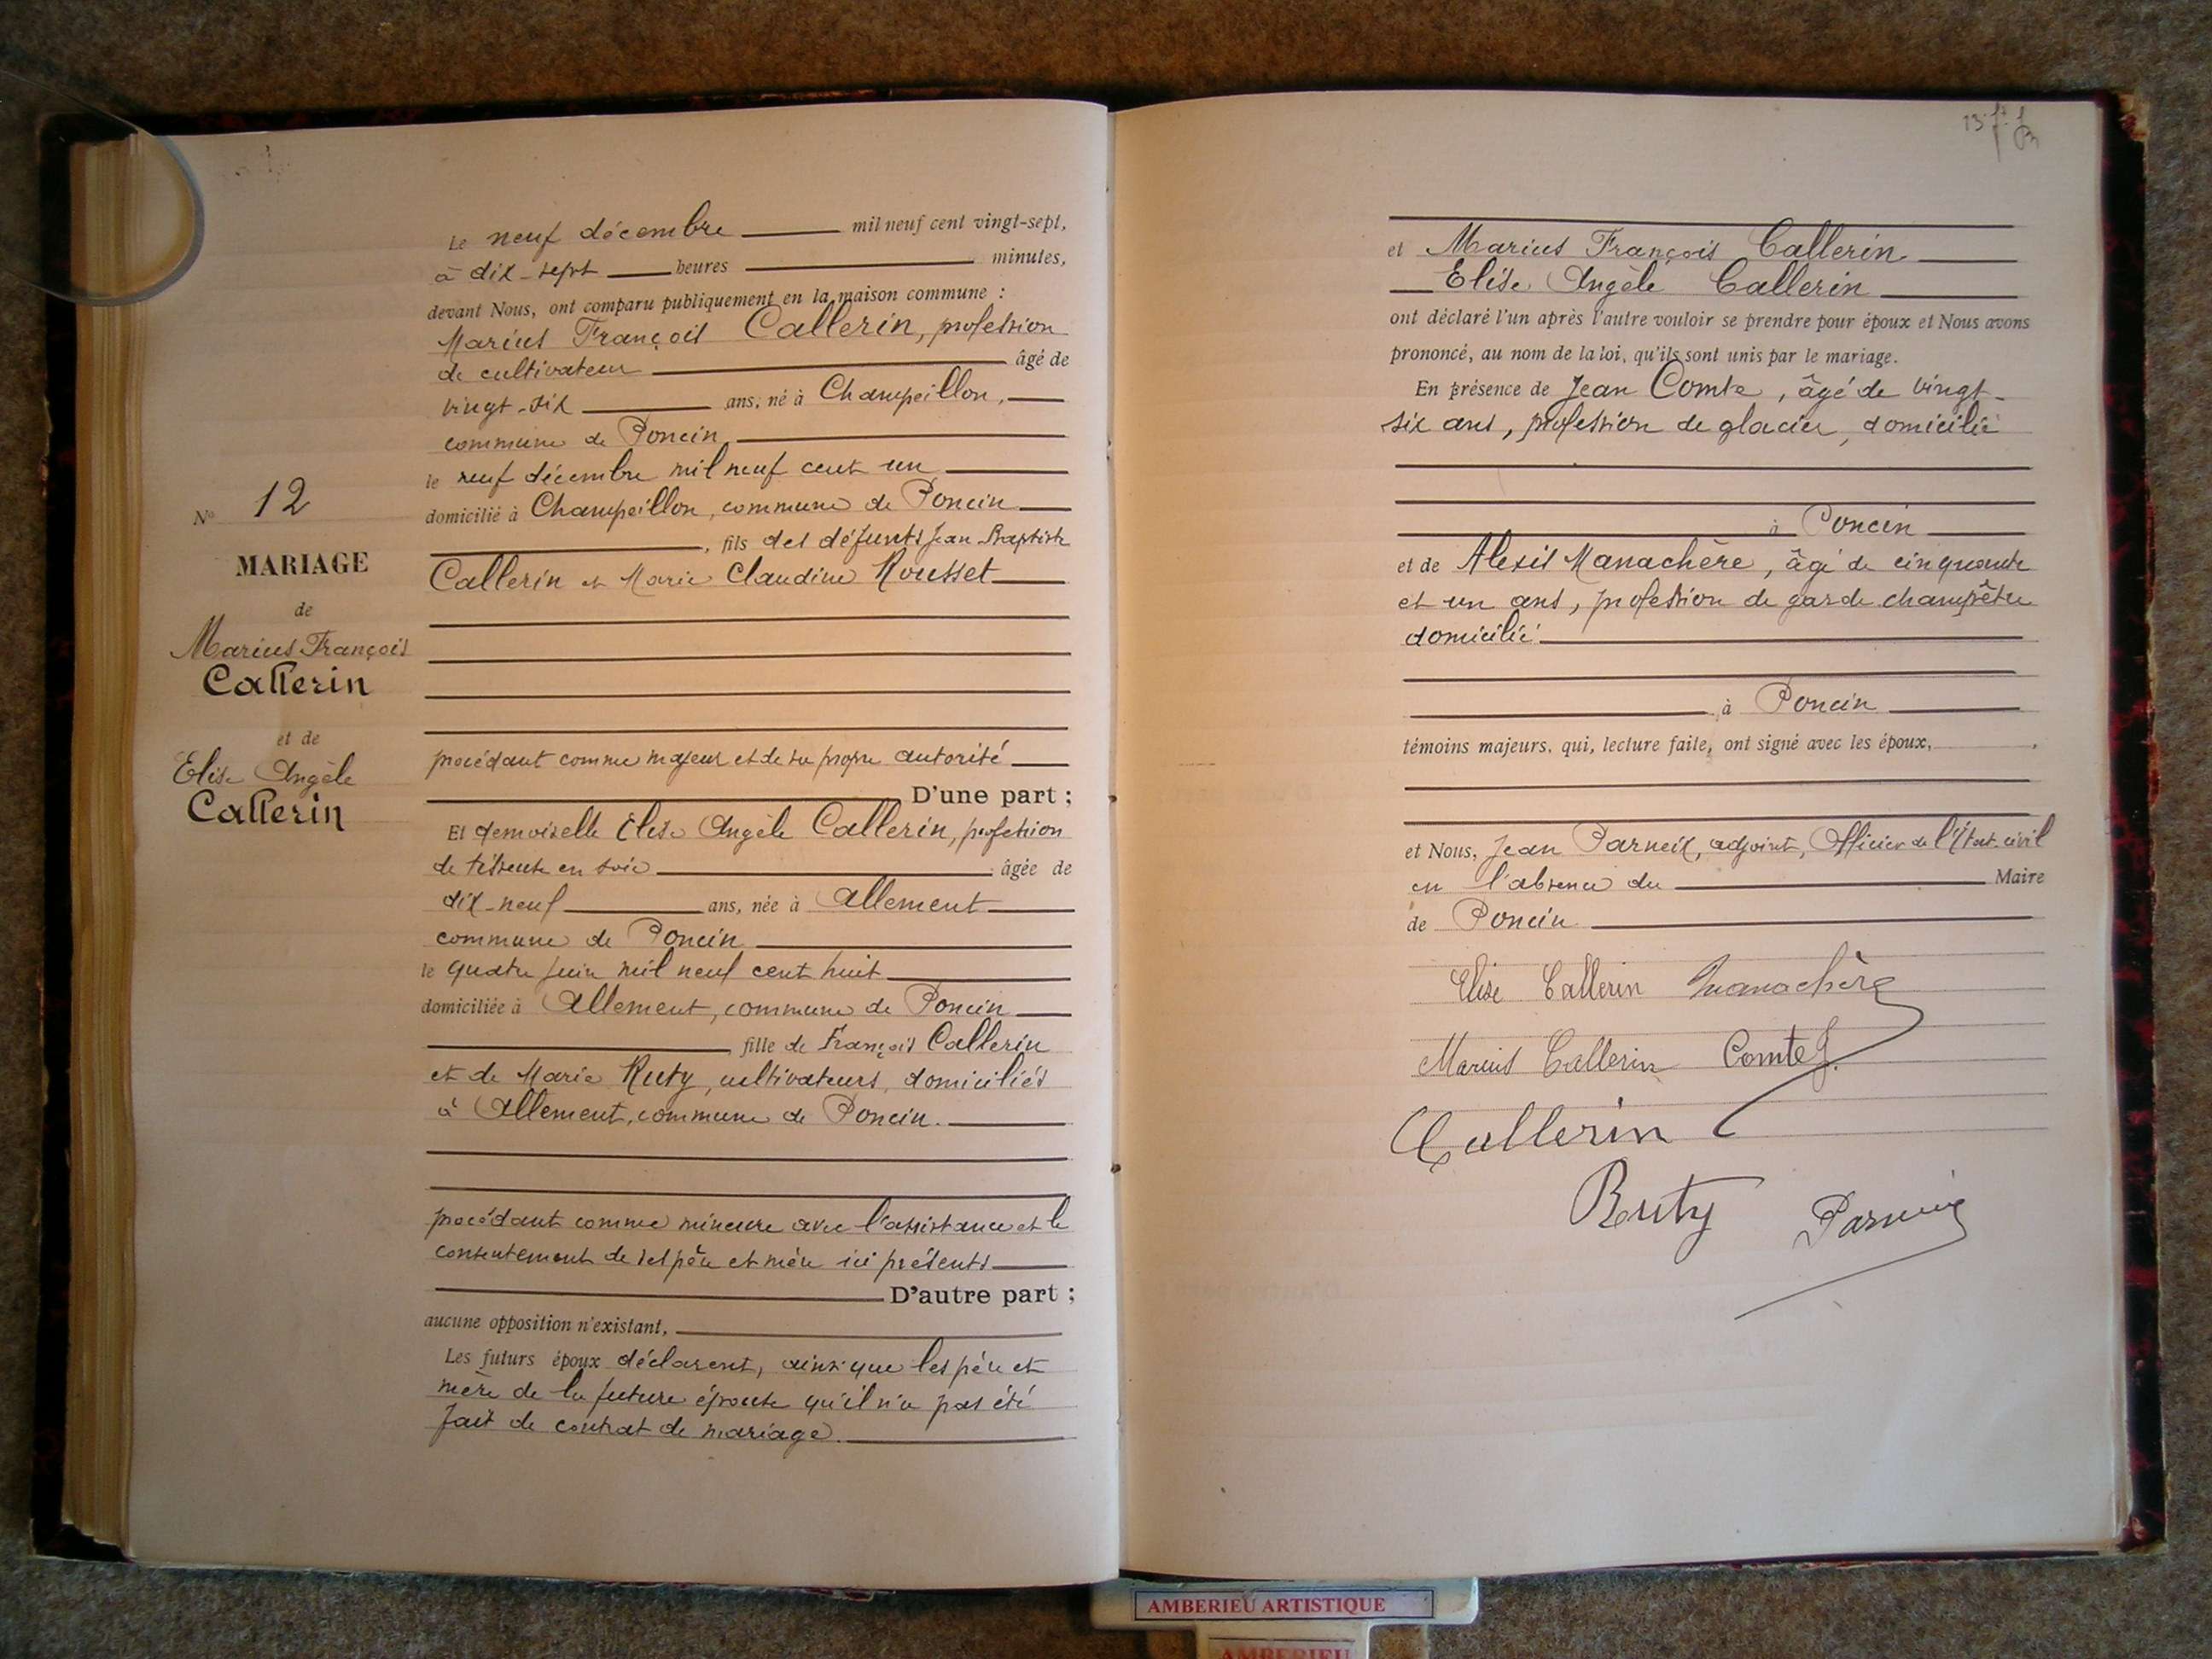 Le neuf décembre mil neuf cent vingt-sept,
à dix-sept heures minutes,
devant Nous, ont comparu publiquement en la maison commune :
Marius François Callerin, profession
de cultivateur âgé de
vingt-six ans, né à Champeillon,
commune de Poncin
le neuf décembre mil neuf cent un
domicilié à Champeillon, commune de Poncin
, fils des défunts Jean Baptiste
Callerin et Marie Claudine Rousset
procédant comme majeur et de sa propre autorité
D'une part ;
Et demoiselle Elise Angèle Callerin, profession
de tisseuse en soie âgée de
dix-neuf ans, née à Allement
commune de Poncin
le quatre juin mil neuf cent huit
domiciliée à Allement, commune de Poncin
, fille de François Callerin
et de Marie Ruty, cultivateurs, domiciliés
à Allement, commune de Poncin.
procédant comme mineure avec l'assistance et le
consentement de ses père et mère ici présents
D'autre part ;
aucune opposition n'existant,
Les futurs époux déclarent, ainsi que les père et
mère de la future épouse qu'il n'a pas été
fait de contrat de mariage.
No 12
MARIAGE
de
Marius François
Callerin
et de
Elise Angèle
Callerin
13
et Marius François Callerin
Elise Angèle Callerin
ont déclaré l'un après l'autre vouloir se prendre pour époux et Nous avons
prononcé, au nom de la loi, qu'ils sont unis par le mariage.
En présence de Jean Comte, âgé de vingt-
six ans, profession de glacier, domicilié
à Poncin
et de Alexis Manachère, âgé de cinquante
et un ans, profession de garde champêtre
domicilié
à Poncin
témoins majeurs, qui, lecture faite, ont signé avec les époux,
et Nous, Jean Parneix, adjoint, Officier de l'Etat-civil
en l'absence du Maire
de Poncin
Elise Callerin Manachère
Marius Callerin Comte J.
Callerin
Ruty Parneix
AMBERIEU ARTISTIQUE
AMBERIEU